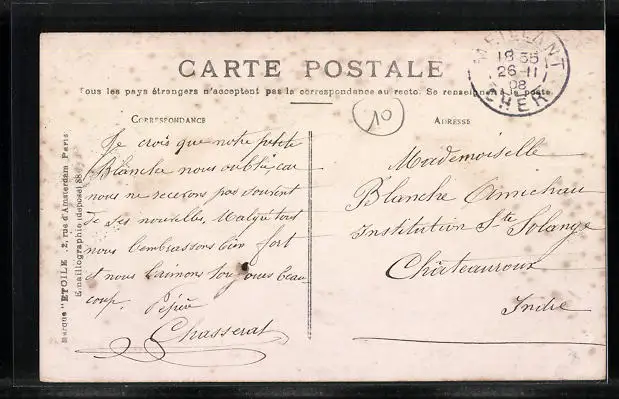 CARTE POSTALE
Tous les pays étrangers n'acceptent pas la correspondance au recto. Se renseigner à la poste.
MEILLANT
18 35
26 - 11
08
CHER
10
CORRESPONDANCE
Je crois que notre petite
Blanche nous oublie, car
nous ne recevons pas souvent
de ses nouvelles. Malgré tout
nous l'embrassons bien fort
et nous l'aimons toujours beau
coup.
Chasserat
ADRESSE
Mademoiselle
Blanche Amichau
Institution Ste Solange
Châteauroux
Indre
Marque "ETOILE", 2, rue d'Amsterdam Paris
Emaillographie (déposé) 88